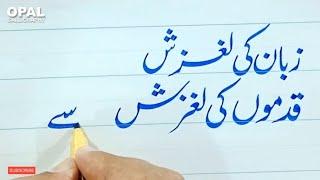 OPAL
CALLIGRAPHY
زبان کی لغزش
قدموں کی لغزش سے
SUBSCRIBE